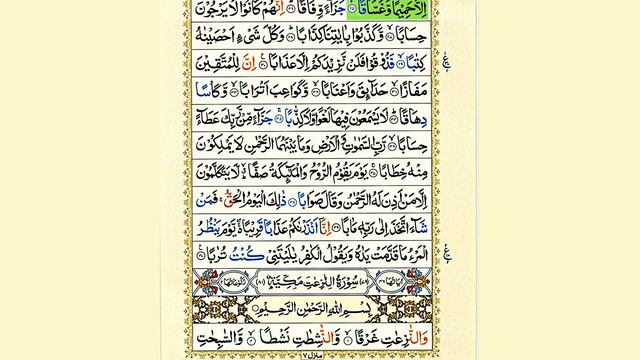 اِلَّا حَمِيْمًا وَّغَسَّاقًا ۙ۝۲۵ جَزَآءً وِّفَاقًا ؕ۝۲۶ اِنَّهُمْ كَانُوْا لَا يَرْجُوْنَ
حِسَابًا ۙ۝۲۷ وَّكَذَّبُوْا بِاٰيٰتِنَا كِذَّابًا ؕ۝۲۸ وَكُلَّ شَيْءٍ اَحْصَيْنٰهُ
كِتٰبًا ۙ۝۲۹ فَذُوْقُوْا فَلَنْ نَّزِيْدَكُمْ اِلَّا عَذَابًا ۠۝۳۰ اِنَّ لِلْمُتَّقِيْنَ
مَفَازًا ۙ۝۳۱ حَدَآئِقَ وَاَعْنَابًا ۙ۝۳۲ وَّكَوَاعِبَ اَتْرَابًا ۙ۝۳۳ وَّكَاْسًا
دِهَاقًا ؕ۝۳۴ لَا يَسْمَعُوْنَ فِيْهَا لَغْوًا وَّلَا كِذّٰبًا ۚ۝۳۵ جَزَآءً مِّنْ رَّبِّكَ عَطَآءً
حِسَابًا ۙ۝۳۶ رَّبِّ السَّمٰوٰتِ وَالْاَرْضِ وَمَا بَيْنَهُمَا الرَّحْمٰنِ لَا يَمْلِكُوْنَ
مِنْهُ خِطَابًا ۚ۝۳۷ يَوْمَ يَقُوْمُ الرُّوْحُ وَالْمَلٰٓئِكَةُ صَفًّا ۙۗ لَّا يَتَكَلَّمُوْنَ
اِلَّا مَنْ اَذِنَ لَهُ الرَّحْمٰنُ وَقَالَ صَوَابًا ۝۳۸ ذٰلِكَ الْيَوْمُ الْحَقُّ ۚ فَمَنْ
شَآءَ اتَّخَذَ اِلٰى رَبِّهٖ مَاٰبًا ۝۳۹ اِنَّآ اَنْذَرْنٰكُمْ عَذَابًا قَرِيْبًا ۖۚ يَّوْمَ يَنْظُرُ
الْمَرْءُ مَا قَدَّمَتْ يَدٰهُ وَيَقُوْلُ الْكٰفِرُ يٰلَيْتَنِيْ كُنْتُ تُرٰبًا ۠۝۴۰
(۷۹) سُوْرَةُ النّٰزِعٰتِ مَكِّيَّةٌ (۸۱)
بِسْمِ اللّٰهِ الرَّحْمٰنِ الرَّحِيْمِ
وَالنّٰزِعٰتِ غَرْقًا ۙ۝۱ وَّالنّٰشِطٰتِ نَشْطًا ۙ۝۲ وَّالسّٰبِحٰتِ
منزل ۷